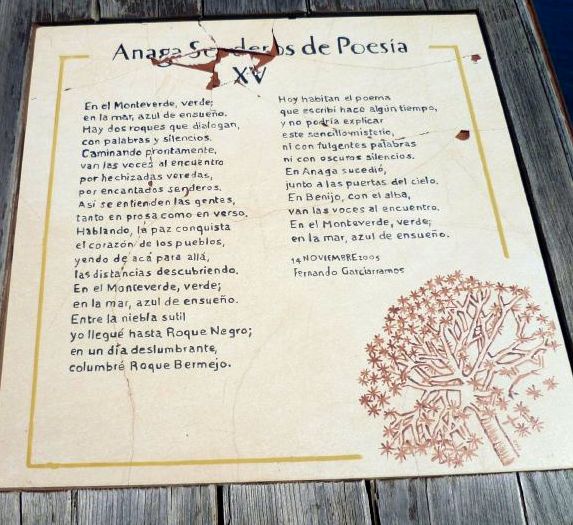 Anaga Senderos de Poesía
XV
En el Monteverde, verde;
en la mar, azul de ensueño.
Hay dos roques que dialogan,
con palabras y silencios.
Caminando prontamente,
van las voces al encuentro
por hechizadas veredas,
por encantados senderos.
Así se entienden las gentes,
tanto en prosa como en verso.
Hablando, la paz conquista
el corazón de los pueblos,
yendo de acá para allá,
las distancias descubriendo.
En el Monteverde, verde;
en la mar, azul de ensueño.
Entre la niebla sutil
yo llegué hasta Roque Negro;
en un día deslumbrante,
columbré Roque Bermejo.
Hoy habitan el poema
que escribí hace algún tiempo,
y no podría explicar
este sencillo misterio,
ni con fulgentes palabras
ni con oscuros silencios.
En Anaga sucedió,
junto a las puertas del cielo.
En Benijo, con el alba,
van las voces al encuentro.
En el Monteverde, verde;
en la mar, azul de ensueño.
14 NOVIEMBRE 2005
Fernando Garciarramos